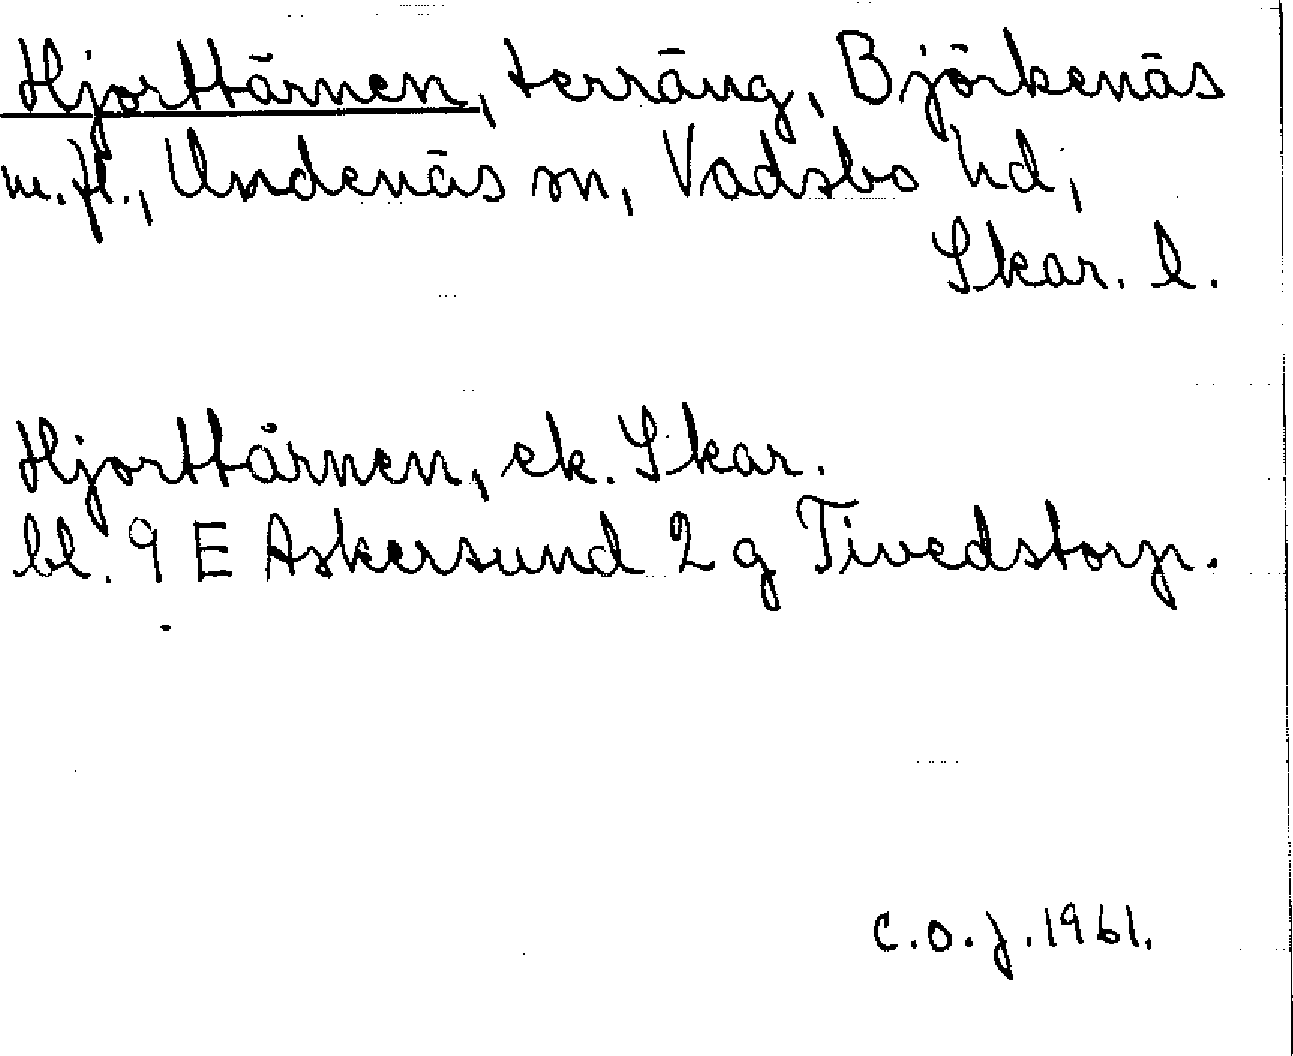 Hjorttärnen, terräng, Björkenäs
m.fl., Undenäs sn, Vadsbo hd,
Skar. l.
Hjorttärnen, ek. Skar.
bl. 9 E Askersund 2 g Tivedstorp.
C.O.J. 1961.